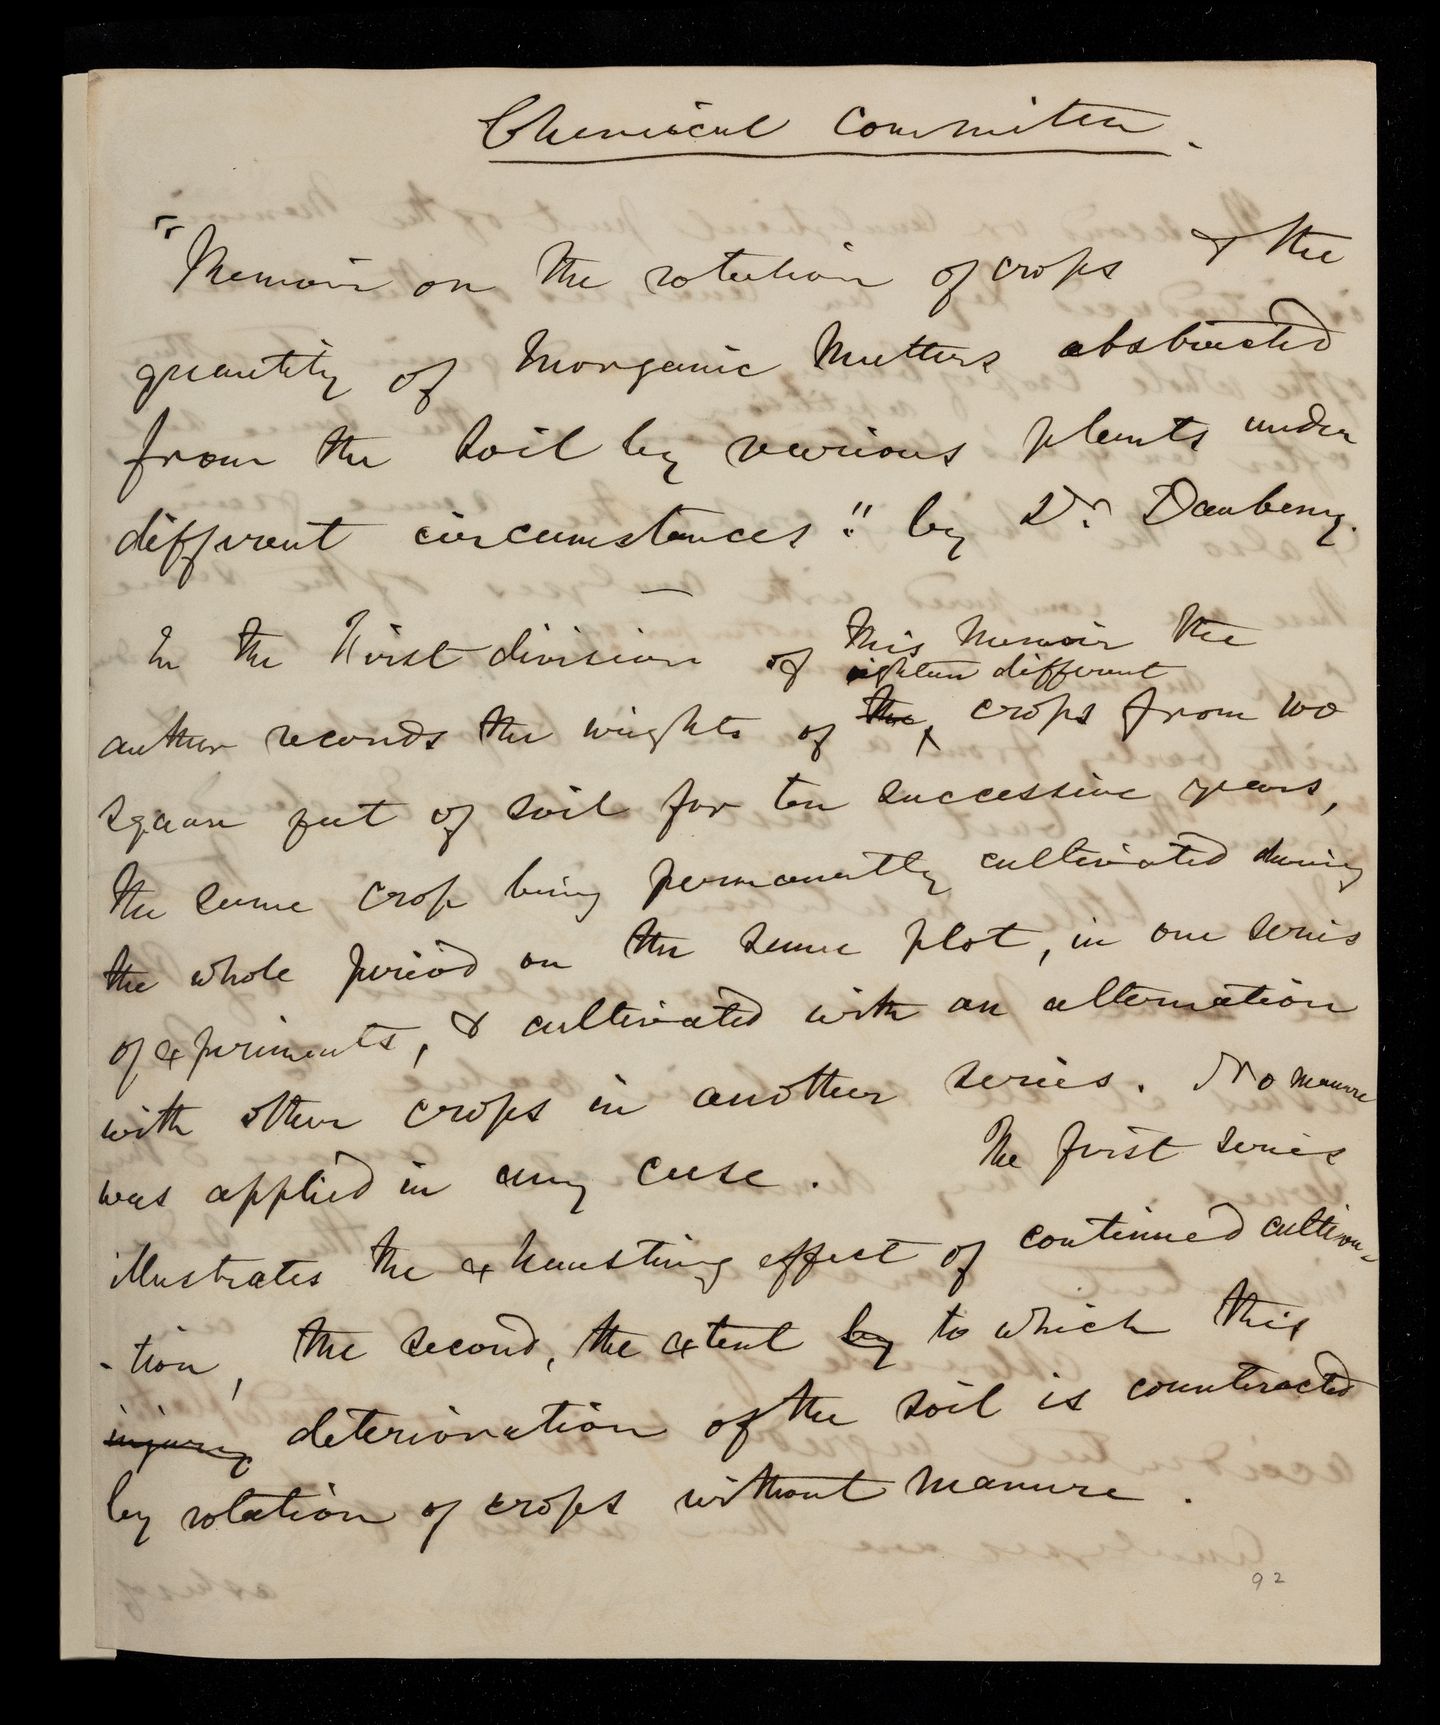 Chemical Committee.
"Memoir on the rotation of crops & the
quantity of Inorganic Matters abstracted
from the soil by various plants under
different circumstances". by Dr. Daubeny.
In the First division of this Memoir the
eighteen different
author records the weights of the crops from 100
square feet of soil for ten successive years,
the same crop being permanently cultivated during
the whole period on the same plot, in one series
of experiments, & cultivated with an alternation
with other crops in another series. No manure
was applied in any case. The first series
illustrates the exhausting effect of continued cultiva-
-tion, the second, the extent by to which this
injury deterioration of the soil is counteracted
by rotation of crops without manure.
92